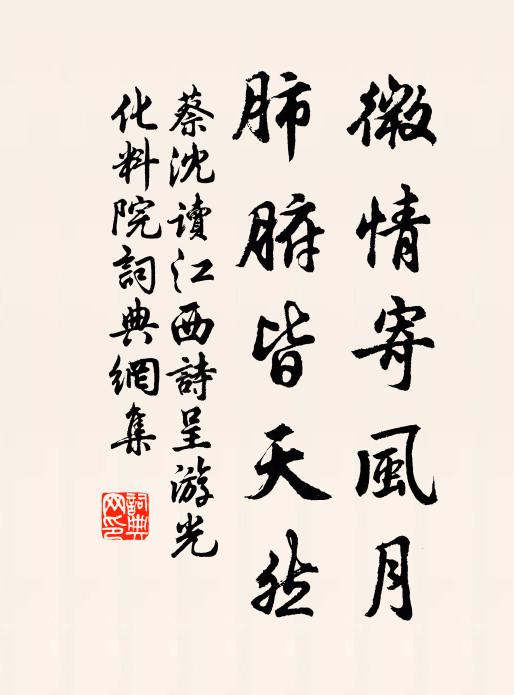 微情寄風月
肺腑皆天然
蔡沈讀江西詩呈游光
化料院詞典網集
詞典網印